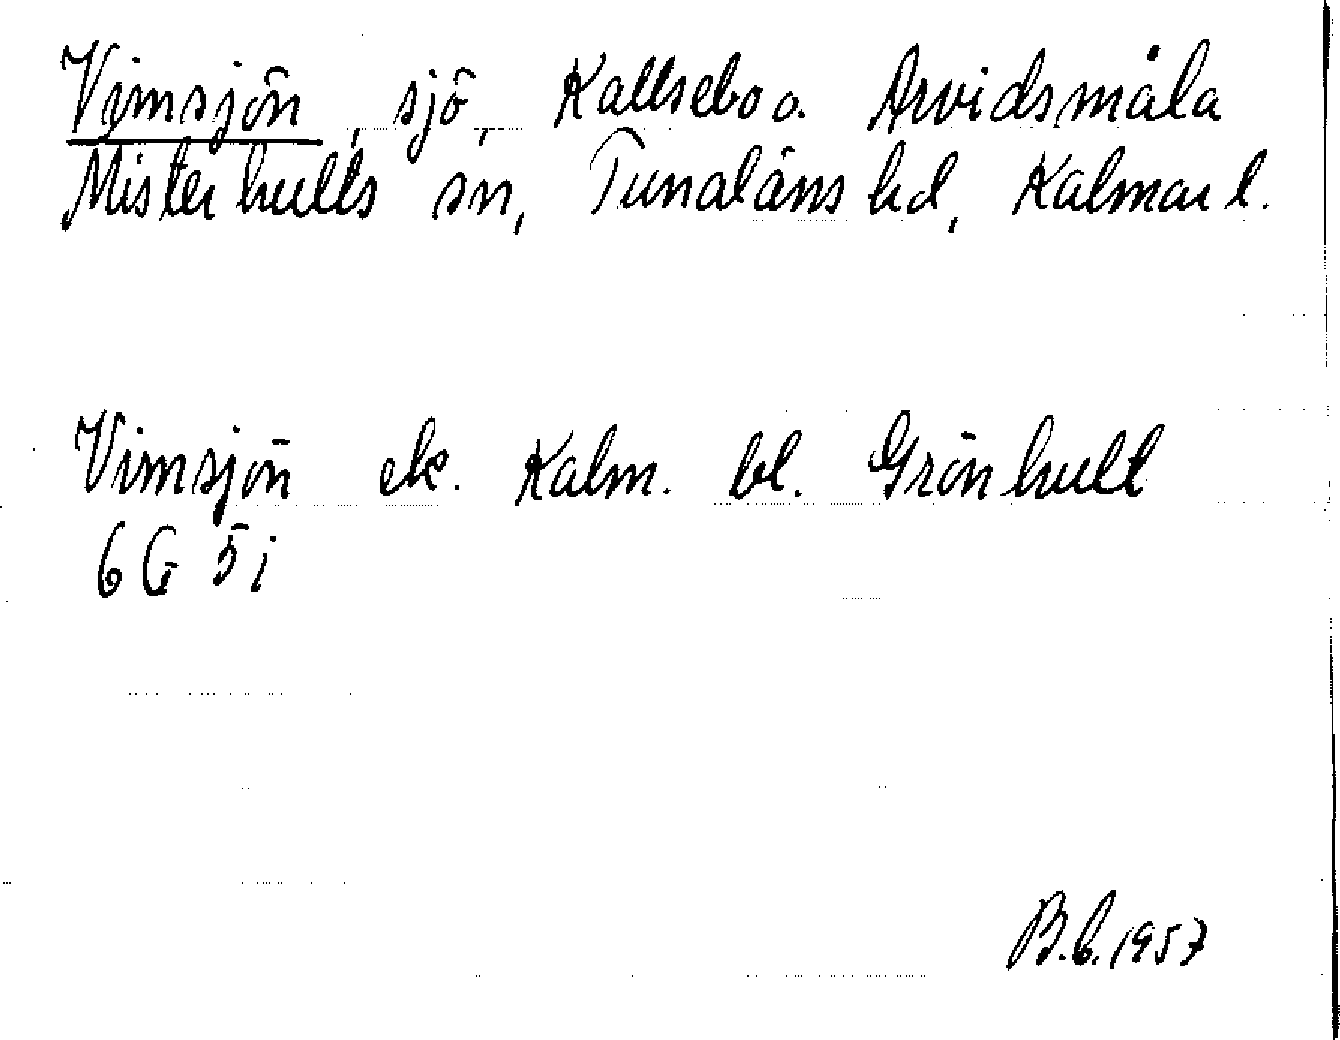 Vimsjön, sjö, Kallsebo o. Arvidsmåla
Misterhults sn, Tunaläns hd, Kalmar l.
Vimsjön ek. Kalm. bl. Grönhult
6 G 5 i
B.b. 1957